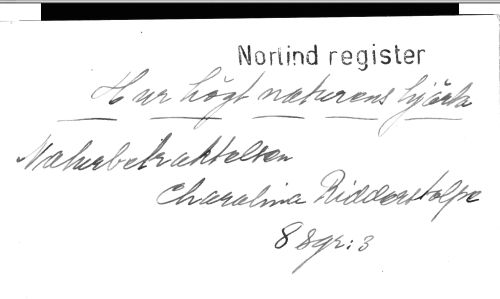 Norlind register
Hur högt naturens hjärta
Naturbetraktelsen
Charalina Ridderstolpe
8 sgr: 3